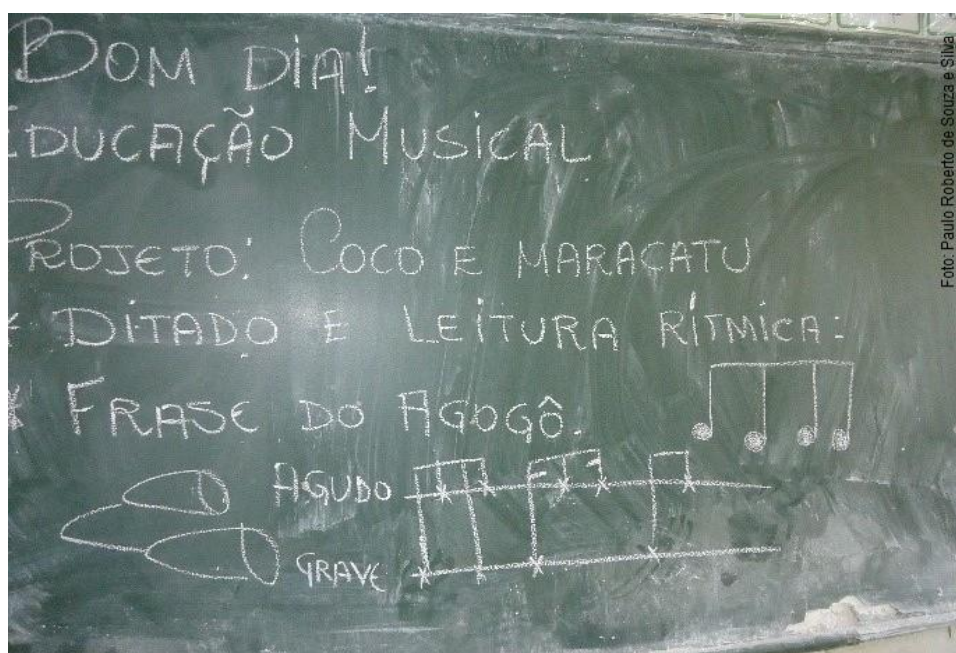 BOM DIA!
EDUCAÇÃO MUSICAL
PROJETO: COCO E MARACATU
* DITADO E LEITURA RÍTMICA:
* FRASE DO AGOGÔ.
AGUDO
GRAVE
Foto: Paulo Roberto de Souza e Silva